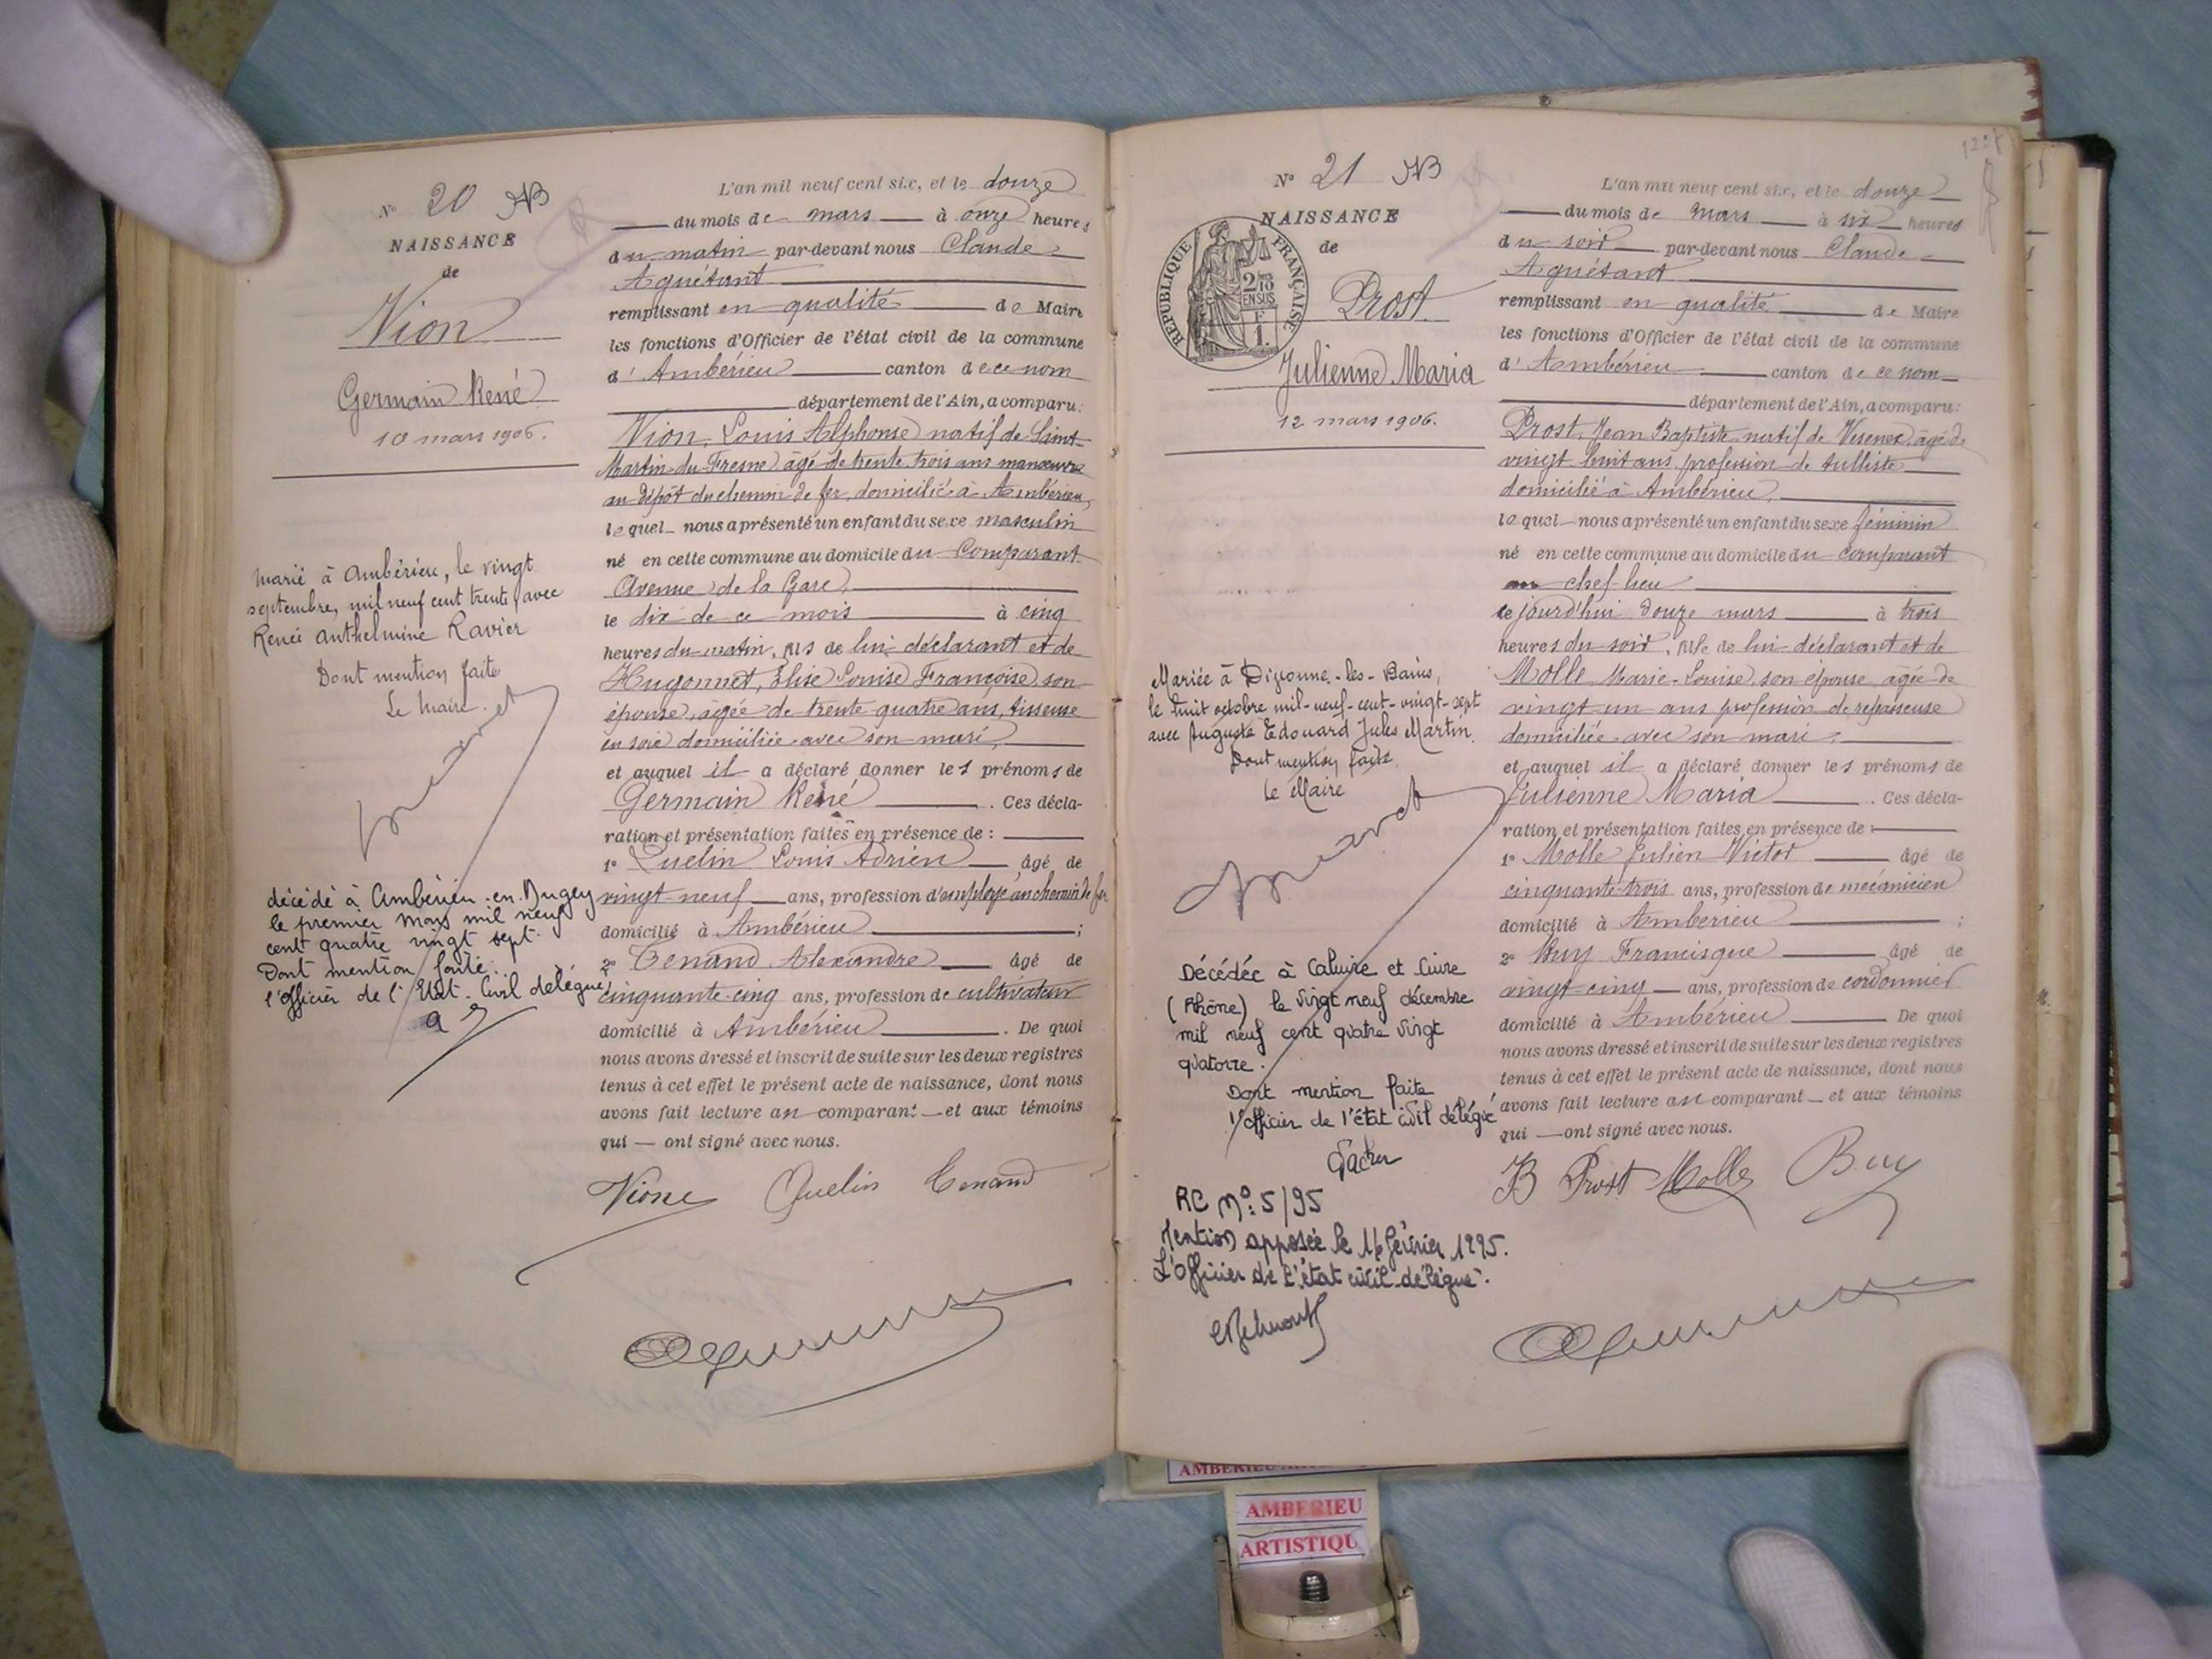 N° 20 NB
NAISSANCE
de
Vion
Germain René
10 mars 1906.
marié à Ambérieu, le vingt
septembre, mil neuf cent trente, avec
Renée Anthelmine Ravier
Dont mention faite
Le Maire.
décédé à Ambérieu-en-Bugey
le premier mars mil neuf
cent quatre vingt sept.
Dont mention faite.
l'officier de l'Etat-Civil délégué
L'an mil neuf cent six, et le douze
du mois de mars à onze heures
du matin par-devant nous Claude
Aguétant
remplissant en qualité de Maire
les fonctions d'Officier de l'état civil de la commune
d'Ambérieu canton de ce nom
département de l'Ain, a comparu:
Vion, Louis Alphonse natif de Saint
Martin du Fresne âgé de trente trois ans manœuvre
au dépôt du chemin de fer, domicilié à Ambérieu,
lequel nous a présenté un enfant du sexe masculin
né en cette commune au domicile du comparant
Avenue de la Gare,
le dix de ce mois à cinq
heures du matin, fils de lui déclarant et de
Hugonnet, Elise Louise Françoise, son
épouse, âgée de trente quatre ans, tisseuse
en soie domiciliée avec son mari,
et auquel il a déclaré donner les prénoms de
Germain René . Ces décla-
ration et présentation faites en présence de :
1° Quelin Louis Adrien âgé de
vingt-neuf ans, profession d'employé au chemin de fer
domicilié à Ambérieu ;
2° Tenand Alexandre âgé de
cinquante-cinq ans, profession de cultivateur
domicilié à Ambérieu . De quoi
nous avons dressé et inscrit de suite sur les deux registres
tenus à cet effet le présent acte de naissance, dont nous
avons fait lecture au comparant et aux témoins
qui — ont signé avec nous.
Vion Quelin Tenand
N° 21 NB
NAISSANCE
de
RÉPUBLIQUE FRANÇAISE
2/10 EN SUS
F
1.
Prost
Julienne Maria
12 mars 1906.
Mariée à Divonne-les-Bains,
le huit octobre mil-neuf-cent-vingt-sept
avec Auguste Edouard Jules Martin.
Dont mention faite.
Le Maire
Décédée à Caluire et Cuire
(Rhône) le vingt neuf décembre
mil neuf cent quatre vingt
quatorze.
Dont mention faite
l'officier de l'état civil délégué
RC N°: 5/95
Mention apposée le 16 février 1995.
L'Officier de l'état civil délégué.
L'an mil neuf cent six, et le douze
du mois de mars à six heures
du soir par-devant nous Claude
Aguétant
remplissant en qualité de Maire
les fonctions d'Officier de l'état civil de la commune
d'Ambérieu canton de ce nom
département de l'Ain, a comparu:
Prost, Jean Baptiste natif de âgé de
vingt huit ans profession de tulliste
domicilié à Ambérieu
lequel nous a présenté un enfant du sexe féminin
né en cette commune au domicile du comparant
chef-lieu
ce jourd'hui douze mars à trois
heures du soir, fille de lui déclarant et de
Molle Marie-Louise, son épouse, âgée de
vingt un ans profession de repasseuse
domiciliée avec son mari,
et auquel il a déclaré donner les prénoms de
Julienne Maria . Ces décla-
ration et présentation faites en présence de :
1° Molle Julien Victor âgé de
cinquante-trois ans, profession de mécanicien
domicilié à Ambérieu ;
2° Buy Francisque âgé de
vingt-cinq ans, profession de cordonnier
domicilié à Ambérieu De quoi
nous avons dressé et inscrit de suite sur les deux registres
tenus à cet effet le présent acte de naissance, dont nous
avons fait lecture au comparant — et aux témoins
qui — ont signé avec nous.
JB Prost Molle Buy
AMBERIEU
ARTISTIQU